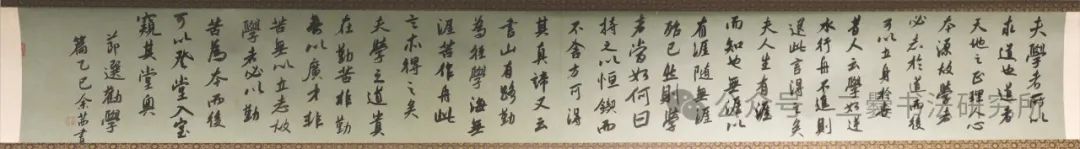 夫學者所以
求道也道者
天地之正理人心
本源故學者
必志於道而後
可以立身於世
昔人云學如逆
水行舟不進則
退此言得之矣
夫人生有涯
而知也無涯以
有涯隨無涯
殆已然則學
者當如何曰
持之以恒鍥而
不舍方可得
其真諦又云
書山有路勤
為徑學海無
涯苦作舟此
言亦得之矣
夫學之道貴
在勤苦非勤
無以廣才非
苦無以立志故
學者必以勤
苦為本而後
可以登堂入室
窺其堂奧
節選勸學
篇乙巳余萬書
公众号·二爨书法研究所